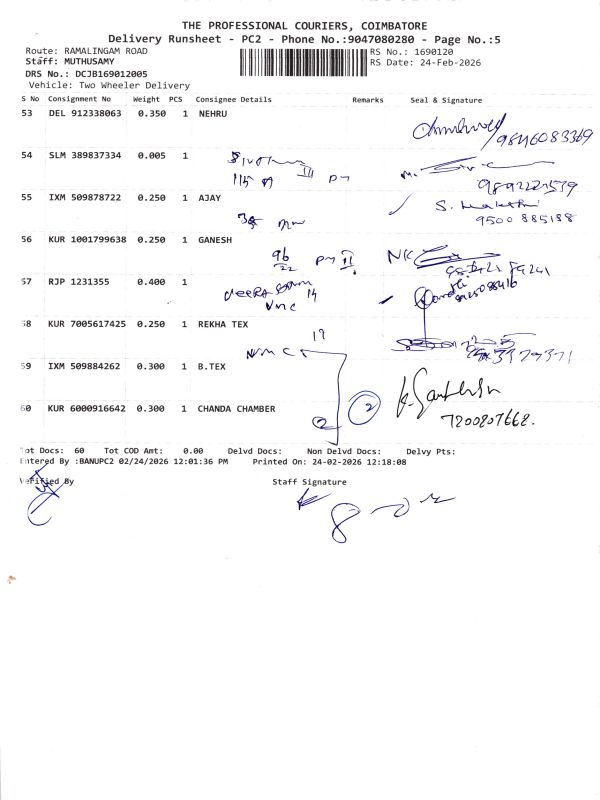 THE PROFESSIONAL COURIERS, COIMBATORE
Delivery Runsheet - PC2 - Phone No.:9047080280 - Page No.:5
Route: RAMALINGAM ROAD RS No.: 1690120
Staff: MUTHUSAMY RS Date: 24-Feb-2026
DRS No.: DCJB169012005
Vehicle: Two Wheeler Delivery
S No Consignment No Weight PCS Consignee Details Remarks Seal & Signature
53 DEL 912338063 0.350 1 NEHRU
54 SLM 389837334 0.005 1
115
55 IXM 509878722 0.250 1 AJAY
9500 885188
56 KUR 1001799638 0.250 1 GANESH
96
22
57 RJP 1231355 0.400 1
14
58 KUR 7005617425 0.250 1 REKHA TEX
NMC
59 IXM 509884262 0.300 1 B.TEX
2
60 KUR 6000916642 0.300 1 CHANDA CHAMBER
2 7200807668.
Tot Docs: 60 Tot COD Amt: 0.00 Delvd Docs: Non Delvd Docs: Delvy Pts:
Entered By :BANUPC2 02/24/2026 12:01:36 PM Printed On: 24-02-2026 12:18:08
Verified By Staff Signature